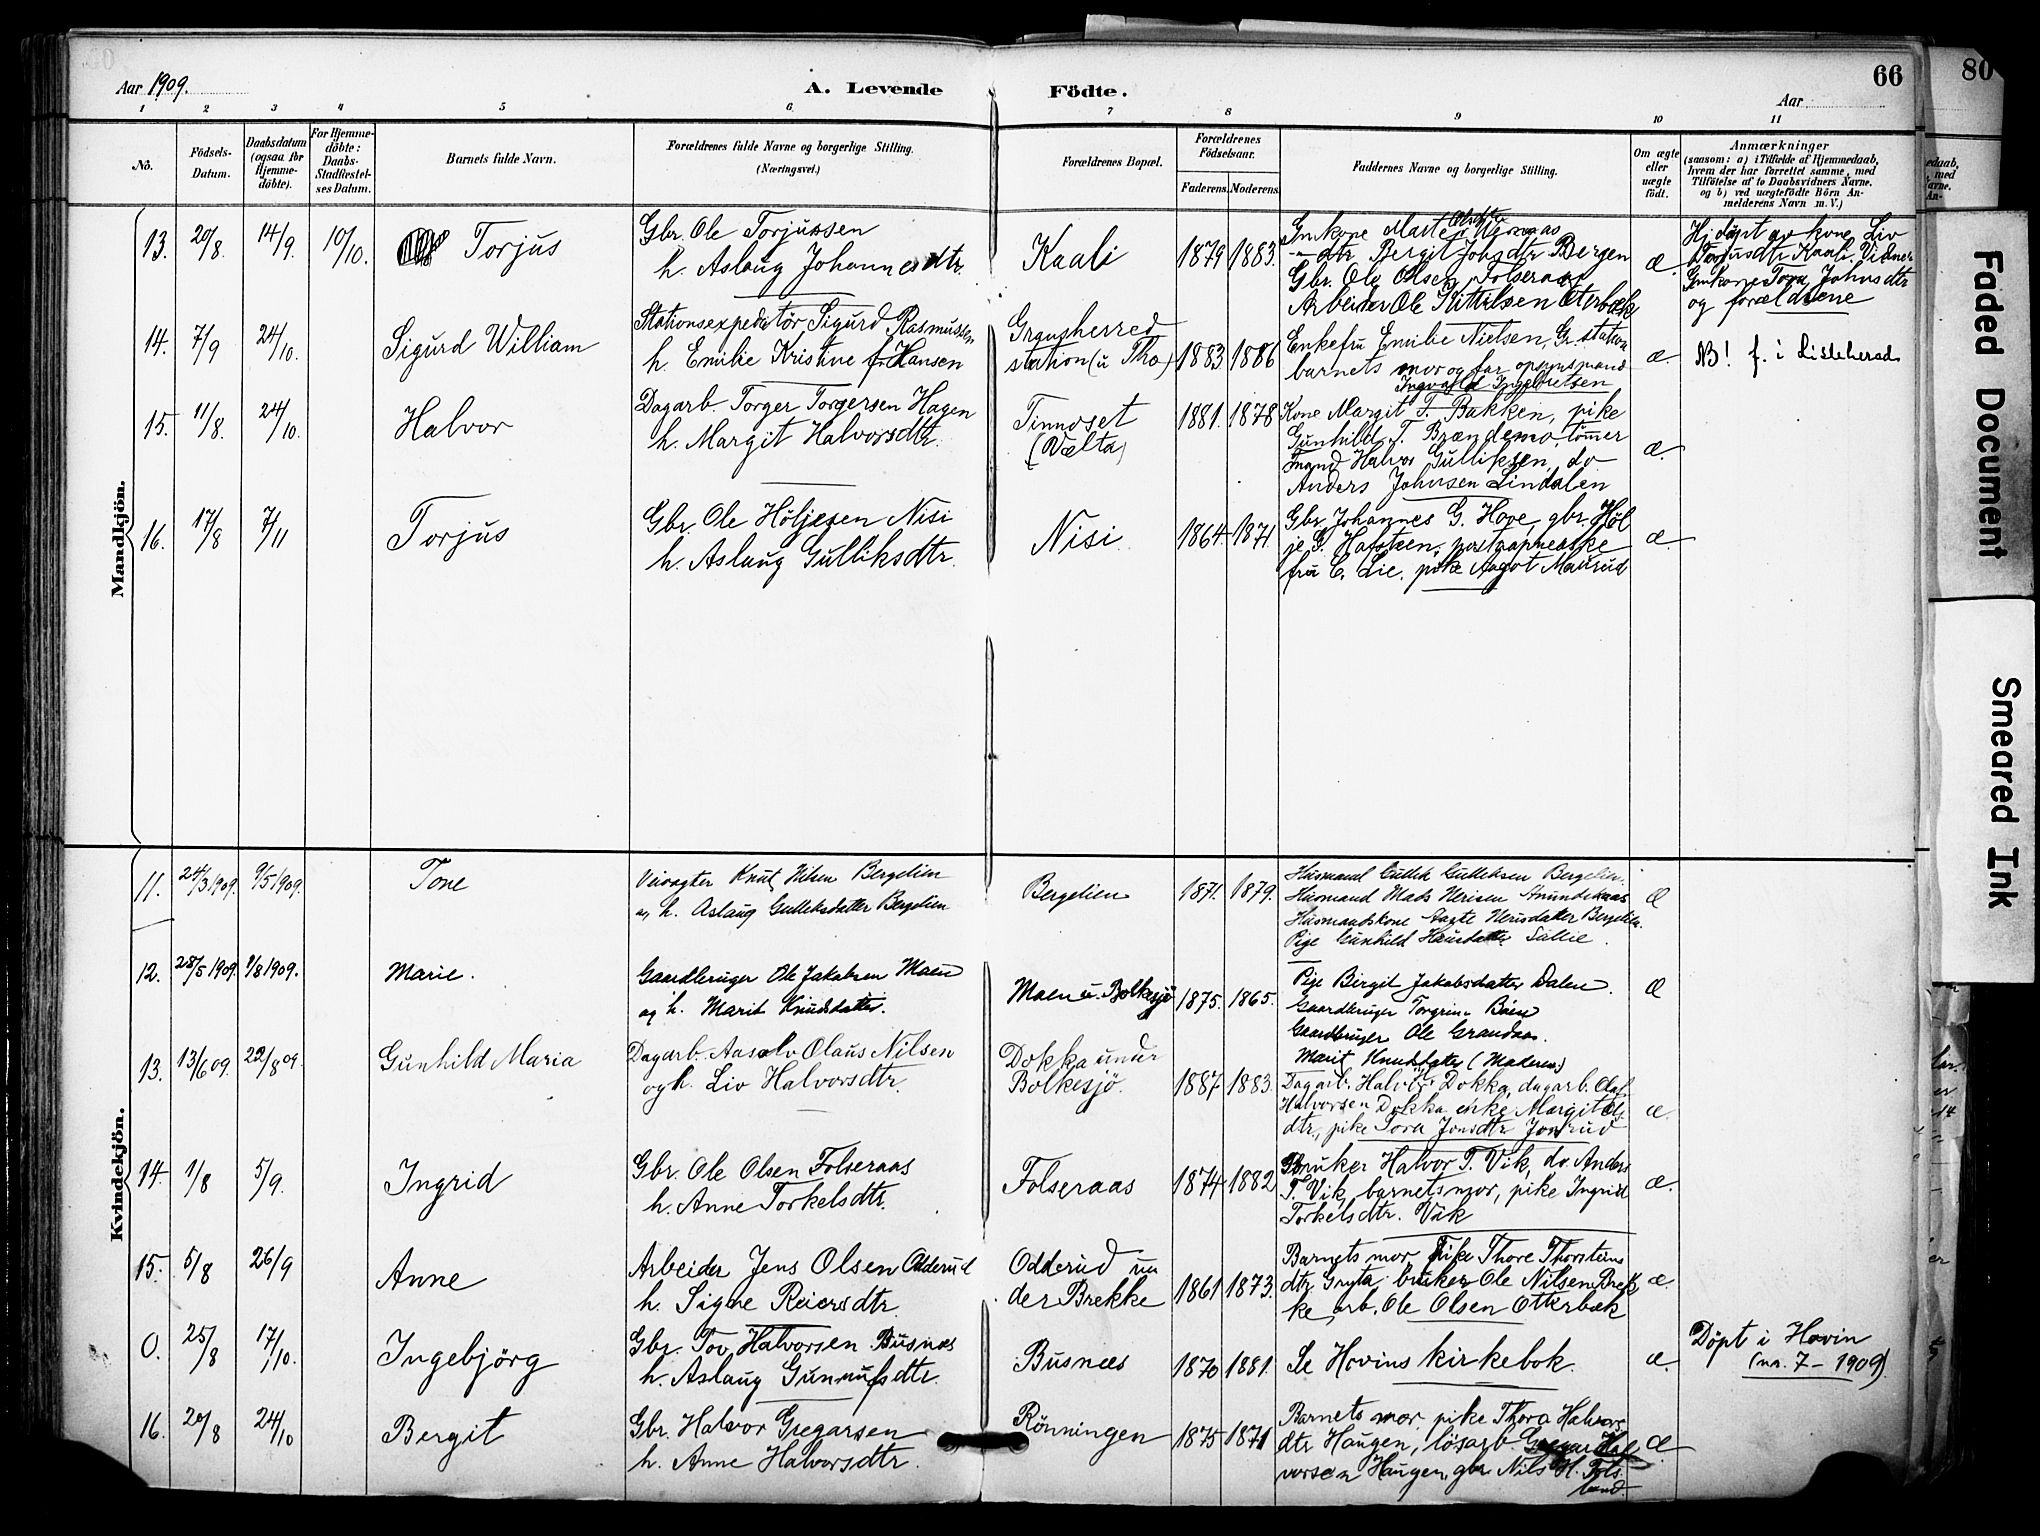 66
80
Aar 1909.
A. Levende Födte.
Aar
1 2 3 4 5 6 7 8 9 10 11
Nô.
Födsels-Datum.
Daabsdatum (ogsaa for Hjemmedöbte).
For Hjemmedöbte: Daabs-Stadfæstelses Datum.
Barnets fulde Navn.
Forældrenes fulde Navne og borgerlige Stilling.
(Næringsvei.)
Forældrenes Bopæl.
Forældrenes Födselsaar.
Faderens. Moderens.
Faddernes Navne og borgerlige Stilling.
Om ægte eller uægte födt.
Anmærkninger
(saasom: a) i Tilfælde af Hjemmedaab,
hvem der har forrettet samme, med
Tilföielse af to Daabsvidners Navne.
og b) ved uægtefödte Börn An-
melderens Navn m. V.)
Mandkjön.
13. 20/8 14/9. 10/10. Torjus
Gbr. Ole Torjussen
h. Aslaug Johannesdtr.
Kaali 1879 1883.
Gmkone Marte
dtr. Bergit Johsdtr Bergen
Gbr. Ole Olsen Folseraas
Arbeider Ole Kittilsen Oterbæk
æ.
Hj. döpt av kone Liv
Torjusdtr Kaali. Vidner
Gmkone Tora Johnsdtr
og forældrene
14. 7/9 24/10. Sigurd William
Stationsexpeditör Sigurd Rasmussen
h. Emilie Kristine f. Hansen
Gransherred
station (u Tho) 1883 1886
Enkefru Emilie Nielsen, Gr. station
barnets mor og far opsynsmand
Ingvald Ingebretsen
æ.
NB! f. i Lisleherad
15. 11/8. 24/10. Halvor
Dagarb. Torger Torgersen Hagen
h. Margit Halvorsdtr.
Tinnoset
(Vælta) 1881. 1878
Kone Margit T. Bakken, pike
Gunhild T. Brændemo, tömmer
mand Halvor Gulliksen, do
Anders Johnsen Lindalen
æ.
16. 17/8 7/11 Torjus
Gbr. Ole Höljesen Nisi
h. Aslaug Gulliksdtr.
Nisi 1864. 1871.
Gbr. Johannes G. Hove, gbr. Höl
je G. Hafsteen, postaapnerske
fru C. Lie, pike Aagot Maurud
æ.
Kvindekjön.
11. 24/3 1909. 9/5 1909. Tone
Veivogter Knut Nilsen Bergelien
og h. Aslaug Gulleksdatter Bergelien
Bergelien 1871. 1879.
Husmand Gullek Gulleksen Bergelien.
Husmand Mads Nerisen
Husmandskone Aagte Nerisdatter Bergelien.
Pige Gunhild
Æ
12. 28/5 1909. 1/8 1909. Marie.
Gaardbruger Ole Jakobsen Moen
og h. Marit Knudsdatter.
Moen u. Bolkesjö 1875. 1865.
Pige Birgit Jakobsdatter Dalen.
Gaardbruger Torgrim Böen
Gaardbruger Ole Grandaas.
Marit Knudsdatter (Moderen)
Æ
13. 13/6 09. 22/8 09. Gunhild Maria
Dagarb. Aasolv Olaus Nilsen
og h. Liv Halvorsdtr.
Dokka under
Bolkesjö. 1887. 1883.
Dagarb. Halvor Dokka, dagarb. Olaf
Halvorsen Dokka enke Margit Ols
dtr, pike Tora Jonsdtr Jonrud
æ.
14. 1/8 5/9. Ingrid
Gbr. Ole Olsen Folseraas
h. Anne Torkelsdtr.
Folseraas 1874. 1882
Bruker Halvor T. Vik, do. Anders
T. Vik, barnets mor, pike Ingrid
Torkelsdtr. Vik
æ.
15. 5/8 26/9 Anne
Arbeider Jens Olsen Odderud
h. Signe Reiersdtr.
Odderud un
der Brekke 1861 1873.
Barnets mor, Pike Thore Thorsteins
dtr Gryta, bruker Ole Nilsen Brek
ke, arb. Ole Olsen Otterbæk
æ.
0. 25/8 17/10. Ingebjörg
Gbr. Tov Halvorsen Busnes
h. Aslaug Gunnulfsdtr.
Busnæs 1870 1881.
Se Hovins kirkebok.
æ.
Döpt i Hovin
(nr. 7 - 1909)
16. 20/8 24/10 Bergit
Gbr. Halvor Gregarsen
h. Anne Halvorsdtr.
Rönningen 1875 1871
Barnets mor, pike Thora Halvors
dtr Haugen, lösarb. Gregar Hal
vorsen Haugen, gbr Nils H. Fols
land.
Æ.
Faded Document
Smeared Ink